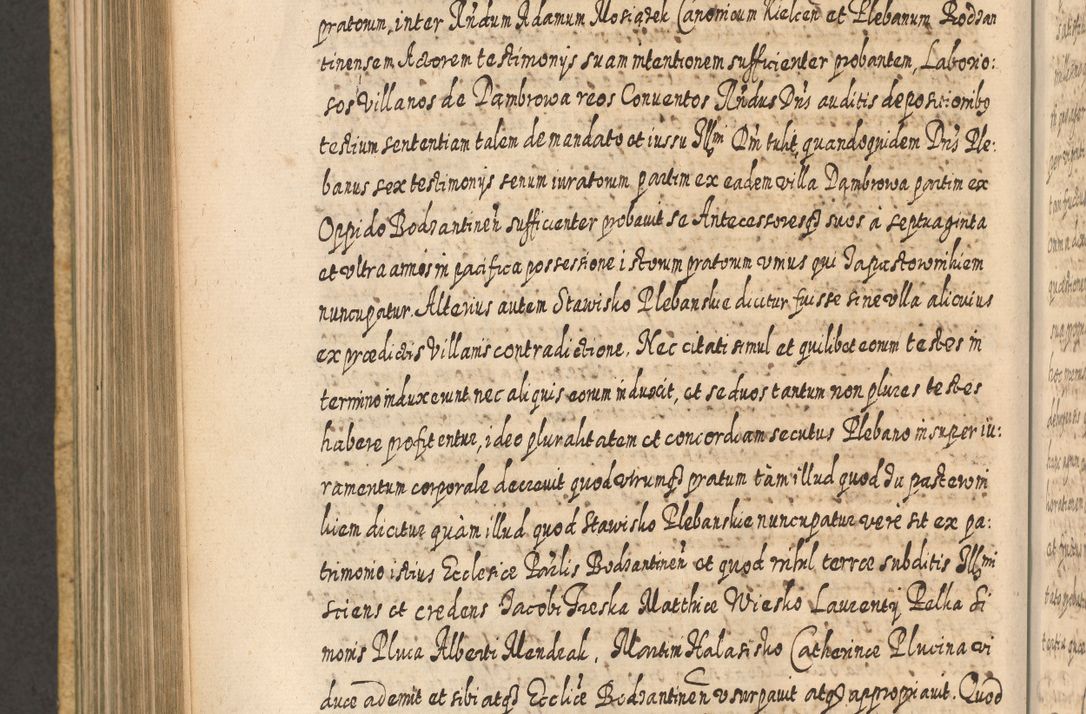 pratorum, inter Rndum Adamum Mosiązek Canonicum Kielcen et Plebanum Bodzan
tinensem Actorem testimonijs suam intentionem sufficienter probantem, Laborio:
sos Villanos de Dambrowa reos Conventos Rndus Dns auditis depositionibq
testium sententiam talem de mandato et iussu Illmi Dni tulit, quandoquidem Dns Ple:
banus sex testimonijs senum iuratorum partim ex eadem villa Dambrowa partim ex
Oppido Bodzantinen sufficienter probauit se Antecessoresq suos à septuaginta
et vltra annos in pacifica possessione istorum pratorum vnius qui Zapastownikiem
nuncupatur. Alterius autem Stawisko Plebanskie dicitur fuisse sine vlla alicuius
ex prædictis Villanis contradictione. Nec citati simul et quilibet eorum testes in
termino induxerunt nec aliquis eorum induxit, et se duos tantum non plures testes
habere profitentur, ideo pluralitatem et concordiam secutus Plebano insuper iu:
ramentum corporale decrevit quod vtrumq pratum tàm illud quod Za pastewni
kiem dicitur quàm illud quod Stawisko Plebanskie nuncupatur vere sit ex pa:
trimonio istius Ecclesiæ Parlis Bodzantinen et quod nihil terræ subditis Illmi
sciens et credens Jacobi Treska Matthiæ Wiesko Laurentij Pelka Si
monis Pluca Alberti Mendeak, Martini Halasisko Catherinæ Plucina vi
duæ ademit et sibi atq Eccliæ Bodzantinen vsurpauit atq appropriauit. Quod